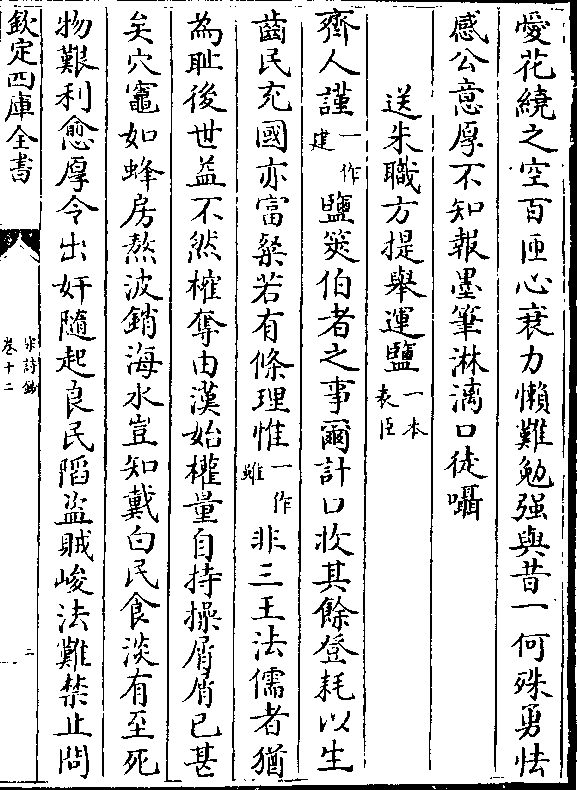 愛花繞之空百匝心衰力懶難勉强與昔一何殊勇怯
感公意厚不知報墨筆淋漓口徒囁
送朱職方提舉運鹽一本表臣
齊人謹一作建鹽筴伯者之事爾計口收其餘登耗以生
齒民充國亦富粲若有條理惟一作雖非三王法儒者猶
為耻後世益不然榷奪由漢始權量自持操屑屑已甚
矣穴竈如蜂房熬波銷海水豈知戴白民食淡有至死
物艱利愈厚令出奸隨起良民陷盜賊峻法難禁止問
欽定四庫全書
宋詩鈔
卷十二
二